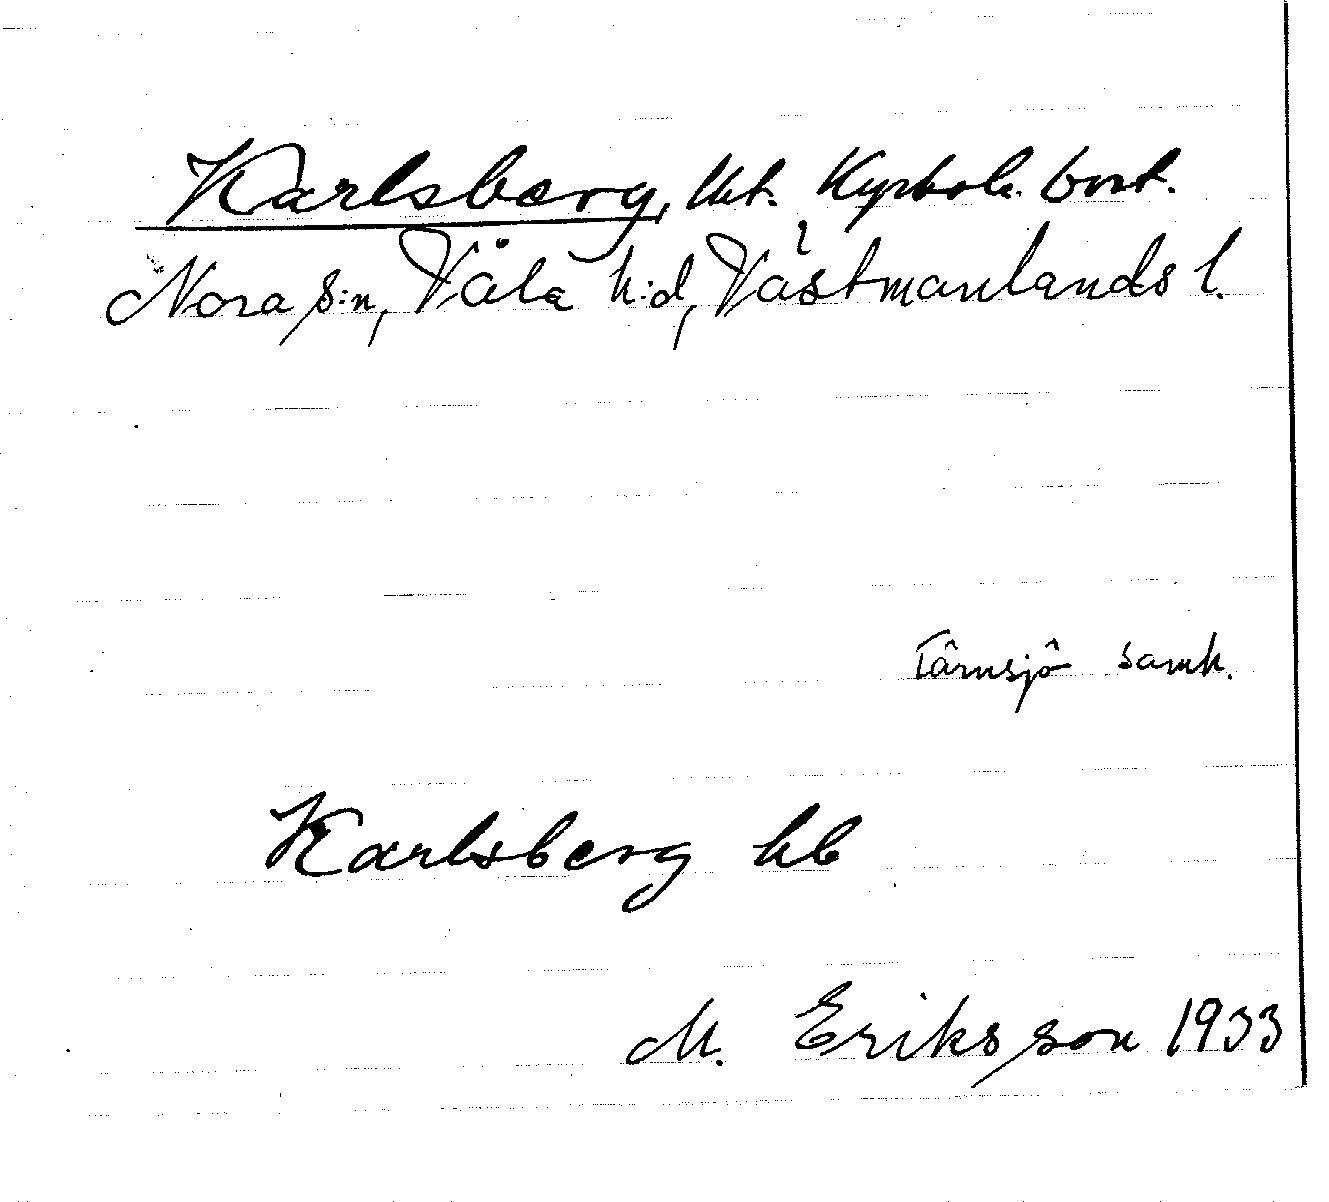 Karlsberg, lht. Kyrbol. bost.
Nora s:n, Våla h:d, Västmanlands l.
Tärnsjö samh.
Karlsberg hb
M. Eriksson 1933